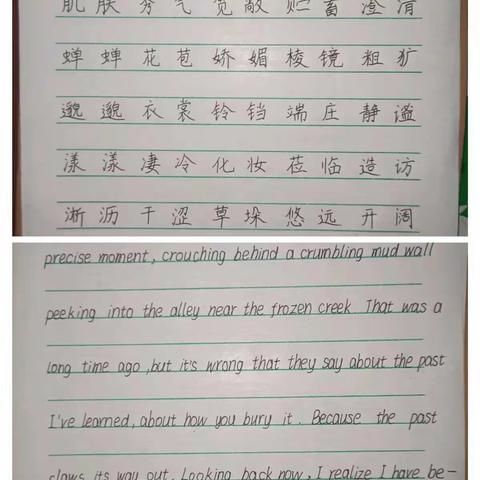 肌 肤 秀 气 宽 敞 贮 蓄 澄 清
蝉 蝉 花 苞 娇 媚 棱 镜 粗 犷
邈 邈 衣 裳 铃 铛 端 庄 静 谧
漾 漾 凄 冷 化 妆 莅 临 造 访
淅 沥 干 涩 草 垛 悠 远 开 阔
precise moment, crouching behind a crumbling mud wall
peeking into the alley near the frozen creek. That was a
long time ago, but it's wrong that they say about the past
I've learned, about how you bury it. Because the past
claws its way out. Looking back now, I realize I have be-